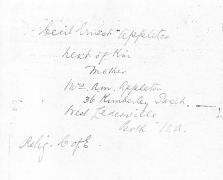 Cecil Ernest Appleton
next of Kin
Mother
Mrs. Am. Appleton
36 Kimberley Street.
West Leederville
Perth W.A.
Relig. C of E.